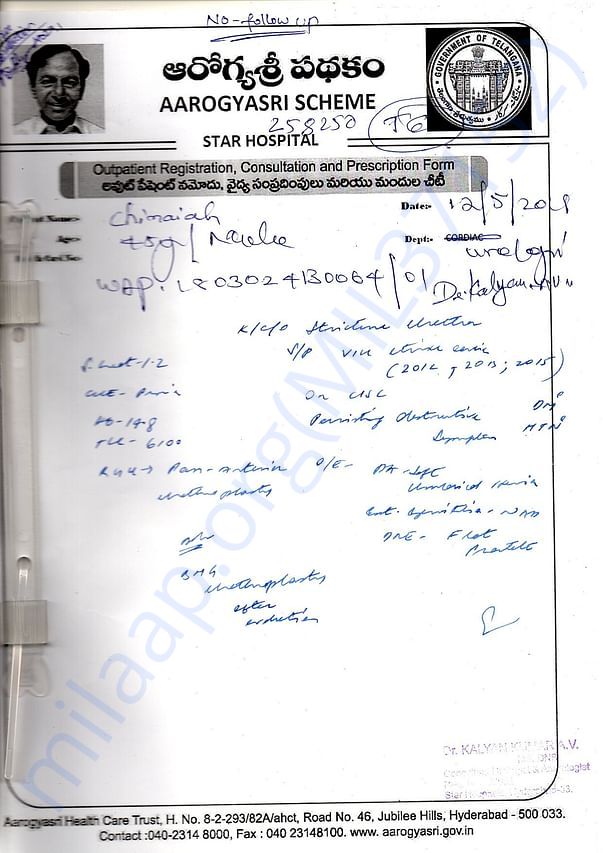 No-follow up
ఆరోగ్యశ్రీ పథకం
AAROGYASRI SCHEME
GOVERNMENT OF TELANGANA
258250
STAR HOSPITAL
Outpatient Registration, Consultation and Prescription Form
అవుట్ పేషెంట్ నమోదు, వైద్య సంప్రదింపులు మరియు మందుల చీటీ
Name:- Chinaiah Date:- 12/5/2018
Age:- 45y/Male Dept:- CORDIAC urology
WAP: 180302430064/01 Dr. Kalyan
K/C/O Stricture urethra
S/P VIU
(2012, 2013, 2015)
S. creat-1.2
CUE- On CISC
Hb-14.8 Persisting obstructive DM
TLC-6100 Symptoms HTN
RGU→ Pan-Anterior O/E- PA-Soft
urethroplasty Umbilical hernia
Ext. genitalia-NAD
Adv DRE- Flat
Prostate
BMG
urethroplasty
after
Dr. KALYAN KUMAR A.V.
Aarogyasri Health Care Trust, H. No. 8-2-293/82A/ahct, Road No. 46, Jubilee Hills, Hyderabad - 500 033.
Contact :040-2314 8000, Fax : 040 23148100. www. aarogyasri.gov.in
milaap.org(MIL371592)